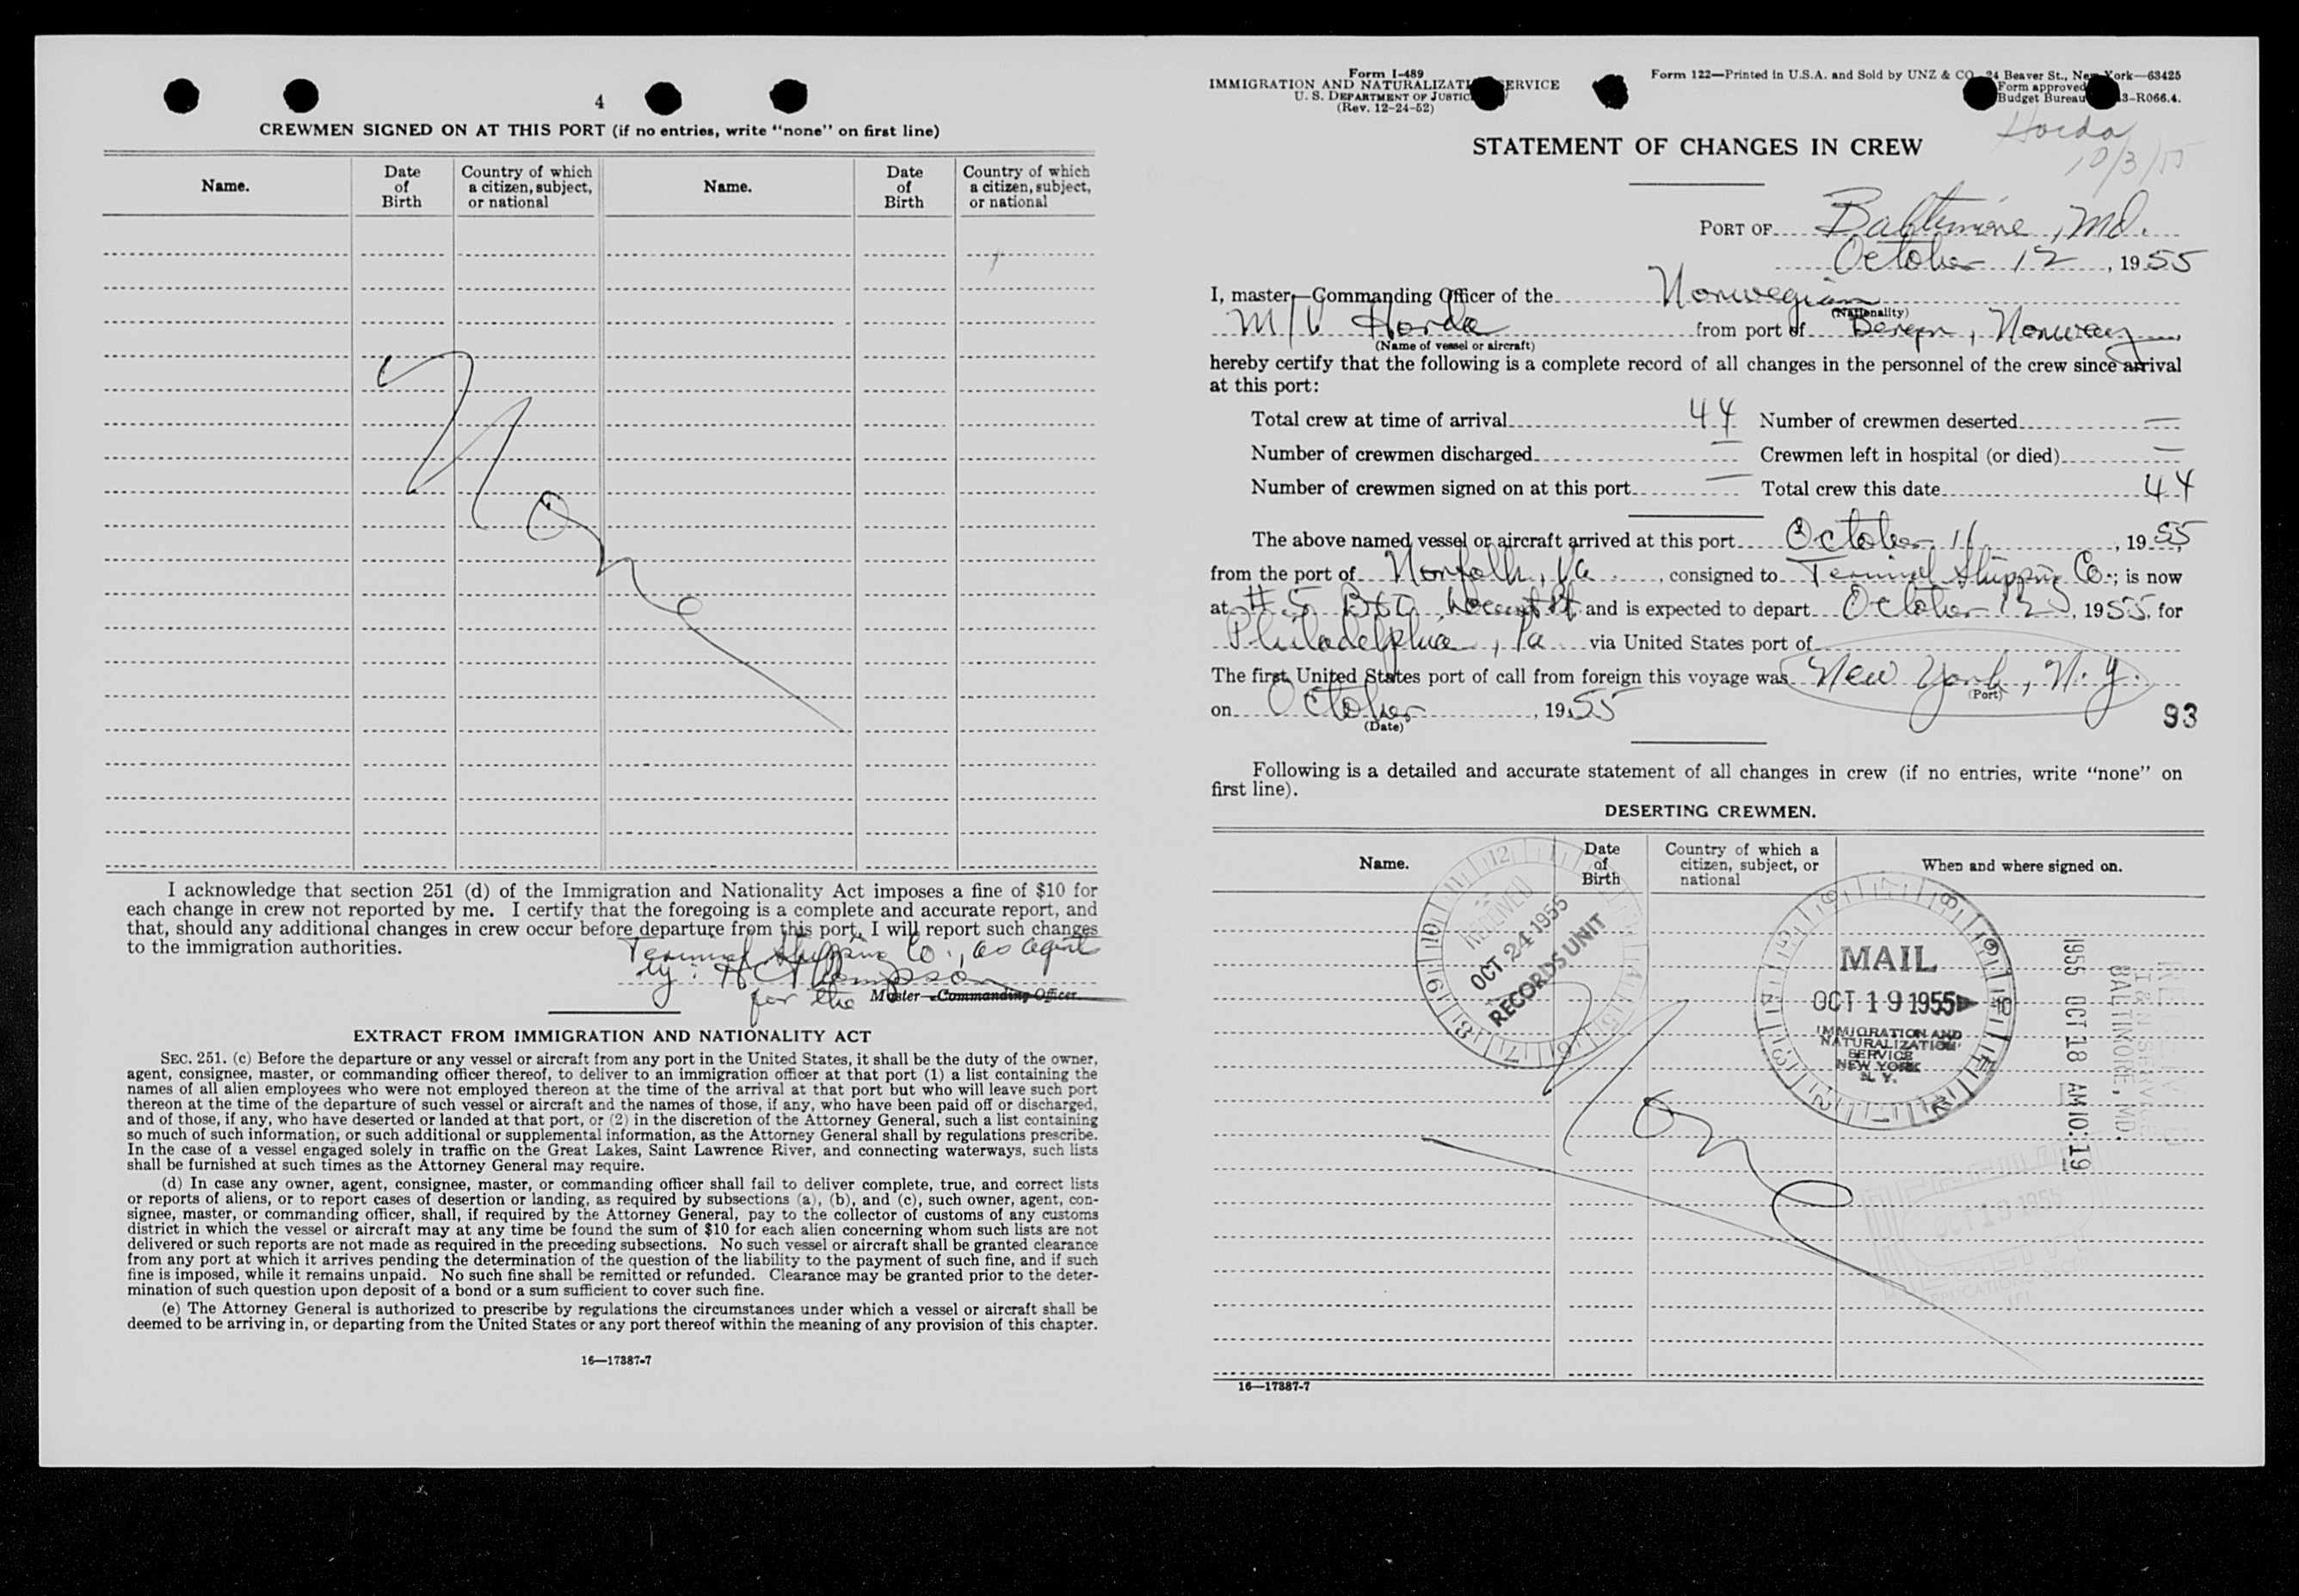 4
CREWMEN SIGNED ON AT THIS PORT (if no entries, write “none” on first line)
Name.
Date of Birth
Country of which a citizen, subject, or national
Name.
Date of Birth
Country of which a citizen, subject, or national
None
I acknowledge that section 251 (d) of the Immigration and Nationality Act imposes a fine of $10 for
each change in crew not reported by me. I certify that the foregoing is a complete and accurate report, and
that, should any additional changes in crew occur before departure from this port, I will report such changes
to the immigration authorities.
Terminal Shipping Co., as agents
by: H C Thompson
for the Master—Commanding Officer
EXTRACT FROM IMMIGRATION AND NATIONALITY ACT
SEC. 251. (c) Before the departure or any vessel or aircraft from any port in the United States, it shall be the duty of the owner,
agent, consignee, master, or commanding officer thereof, to deliver to an immigration officer at that port (1) a list containing the
names of all alien employees who were not employed thereon at the time of the arrival at that port but who will leave such port
thereon at the time of the departure of such vessel or aircraft and the names of those, if any, who have been paid off or discharged,
and of those, if any, who have deserted or landed at that port, or (2) in the discretion of the Attorney General, such a list containing
so much of such information, or such additional or supplemental information, as the Attorney General shall by regulations prescribe.
In the case of a vessel engaged solely in traffic on the Great Lakes, Saint Lawrence River, and connecting waterways, such lists
shall be furnished at such times as the Attorney General may require.
(d) In case any owner, agent, consignee, master, or commanding officer shall fail to deliver complete, true, and correct lists
or reports of aliens, or to report cases of desertion or landing, as required by subsections (a), (b), and (c), such owner, agent, con-
signee, master, or commanding officer, shall, if required by the Attorney General, pay to the collector of customs of any customs
district in which the vessel or aircraft may at any time be found the sum of $10 for each alien concerning whom such lists are not
delivered or such reports are not made as required in the preceding subsections. No such vessel or aircraft shall be granted clearance
from any port at which it arrives pending the determination of the question of the liability to the payment of such fine, and if such
fine is imposed, while it remains unpaid. No such fine shall be remitted or refunded. Clearance may be granted prior to the deter-
mination of such question upon deposit of a bond or a sum sufficient to cover such fine.
(e) The Attorney General is authorized to prescribe by regulations the circumstances under which a vessel or aircraft shall be
deemed to be arriving in, or departing from the United States or any port thereof within the meaning of any provision of this chapter.
16—17887-7
Form I-489
IMMIGRATION AND NATURALIZATI ERVICE
U. S. DEPARTMENT OF JUSTIC
(Rev. 12-24-52)
Form 122—Printed in U.S.A. and Sold by UNZ & CO. 24 Beaver St., New York—63425
Form approved
Budget Bureau 3-R066.4.
Horda
10/3/55
STATEMENT OF CHANGES IN CREW
PORT OF Baltimore, Md.
October 12, 1955
I, master—Commanding Officer of the Norwegian
(Nationality)
M/V Horda from port of Bergen, Norway
(Name of vessel or aircraft)
hereby certify that the following is a complete record of all changes in the personnel of the crew since arrival
at this port:
Total crew at time of arrival 44 Number of crewmen deserted —
Number of crewmen discharged — Crewmen left in hospital (or died) —
Number of crewmen signed on at this port — Total crew this date 44
The above named vessel or aircraft arrived at this port October 11, 1955
from the port of Norfolk, Va, consigned to Terminal Shipping Co.; is now
at #5 B&O Locust Pt and is expected to depart October 12, 1955, for
Philadelphia, Pa via United States port of
The first United States port of call from foreign this voyage was New York, N.Y.
(Port)
on October, 1955
(Date)
93
Following is a detailed and accurate statement of all changes in crew (if no entries, write “none” on
first line).
DESERTING CREWMEN.
Name.
Date of Birth
Country of which a citizen, subject, or national
When and where signed on.
RECEIVED
OCT 24 1955
RECORDS UNIT
MAIL
OCT 19 1955
IMMIGRATION AND
NATURALIZATION
SERVICE
NEW YORK
N. Y.
I & N SERVICE
BALTIMORE, MD.
1955 OCT 18 AM 10:19
None
16—17887-7